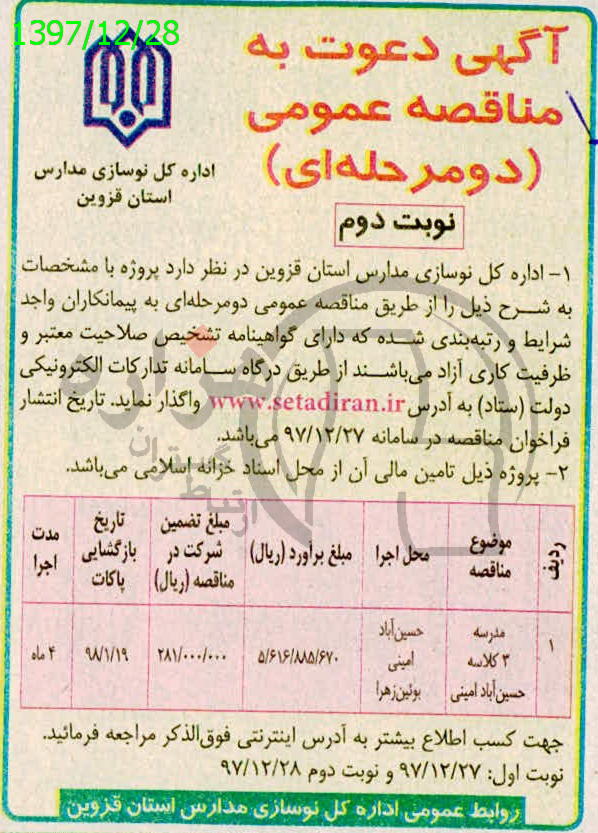 1397/12/28
آگهی دعوت به
مناقصه عمومی
(دومرحله‌ای)
اداره کل نوسازی مدارس
استان قزوین
نوبت دوم
۱- اداره کل نوسازی مدارس استان قزوین در نظر دارد پروژه با مشخصات
به شرح ذیل را از طریق مناقصه عمومی دومرحله‌ای به پیمانکاران واجد
شرایط و رتبه‌بندی شده که دارای گواهینامه تشخیص صلاحیت معتبر و
ظرفیت کاری آزاد می‌باشند از طریق درگاه سامانه تدارکات الکترونیکی
دولت (ستاد) به آدرس www.setadiran.ir واگذار نماید. تاریخ انتشار
فراخوان مناقصه در سامانه ۹۷/۱۲/۲۷ می‌باشد.
۲- پروژه ذیل تامین مالی آن از محل اسناد خزانه اسلامی می‌باشد.
ردیف
موضوع
مناقصه
محل اجرا
مبلغ برآورد (ریال)
مبلغ تضمین
شرکت در
مناقصه (ریال)
تاریخ
بازگشایی
پاکات
مدت
اجرا
۱
مدرسه
۳ کلاسه
حسین‌آباد امینی
حسین‌آباد
امینی
بوئین‌زهرا
۵/۶۱۶/۸۸۵/۶۷۰
۲۸۱/۰۰۰/۰۰۰
۹۸/۱/۱۹
۴ ماه
جهت کسب اطلاع بیشتر به آدرس اینترنتی فوق‌الذکر مراجعه فرمائید.
نوبت اول: ۹۷/۱۲/۲۷ و نوبت دوم ۹۷/۱۲/۲۸
روابط عمومی اداره کل نوسازی مدارس استان قزوین